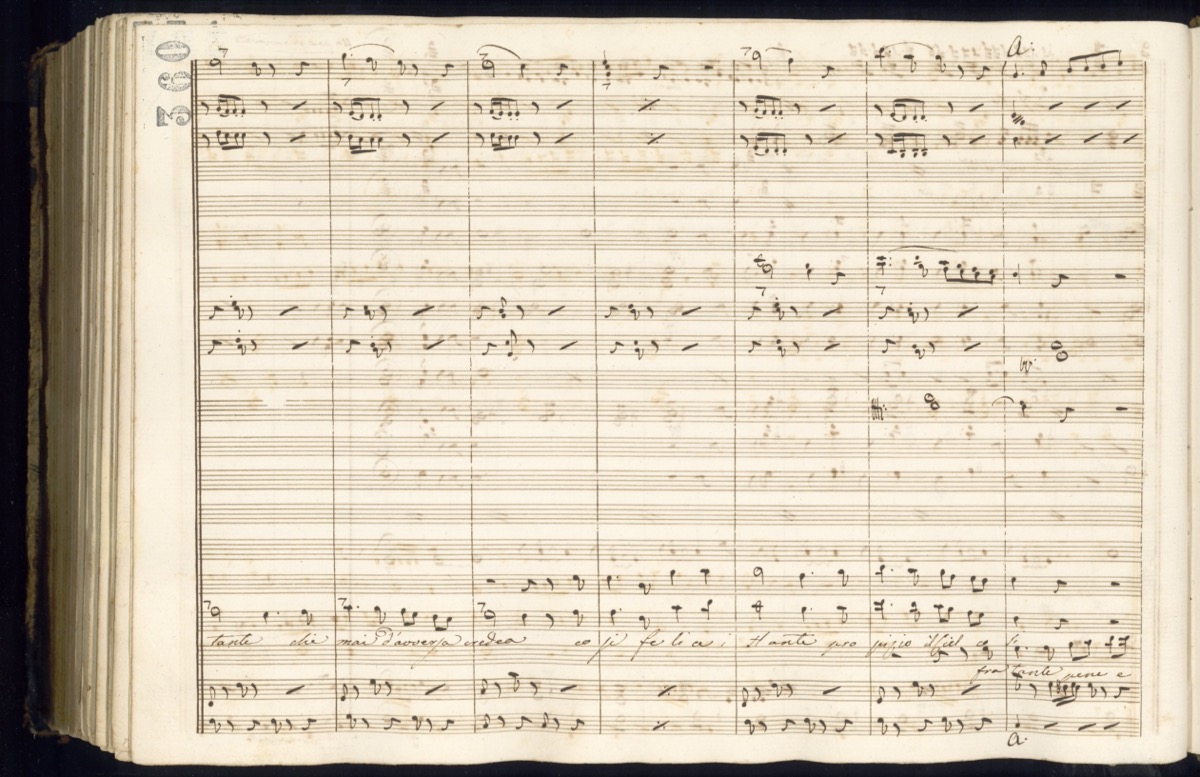 360
a:
tante chi mai d'avversa credea co si fe li ce i stanti pro pizio il ciel ce li
fra tante pene e
a: